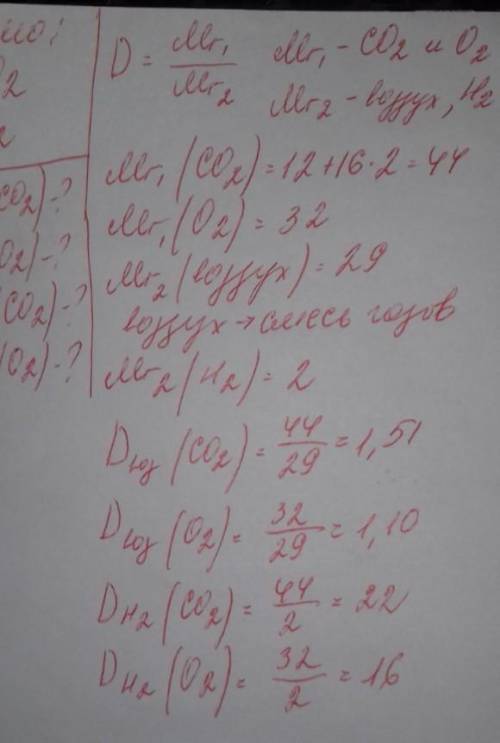 но:
O₂
CO₂)-?
O₂)-?
(CO₂)-?
(O₂)-?
D = Mr₁/Mr₂ Mr₁ - CO₂ и O₂
Mr₂ - воздух, H₂
Mr₁(CO₂) = 12+16·2 = 44
Mr₁(O₂) = 32
Mr₂(воздух) = 29
воздух → смесь газов
Mr₂(H₂) = 2
Dвоз(CO₂) = 44/29 = 1,51
Dвоз(O₂) = 32/29 = 1,10
DH₂(CO₂) = 44/2 = 22
DH₂(O₂) = 32/2 = 16